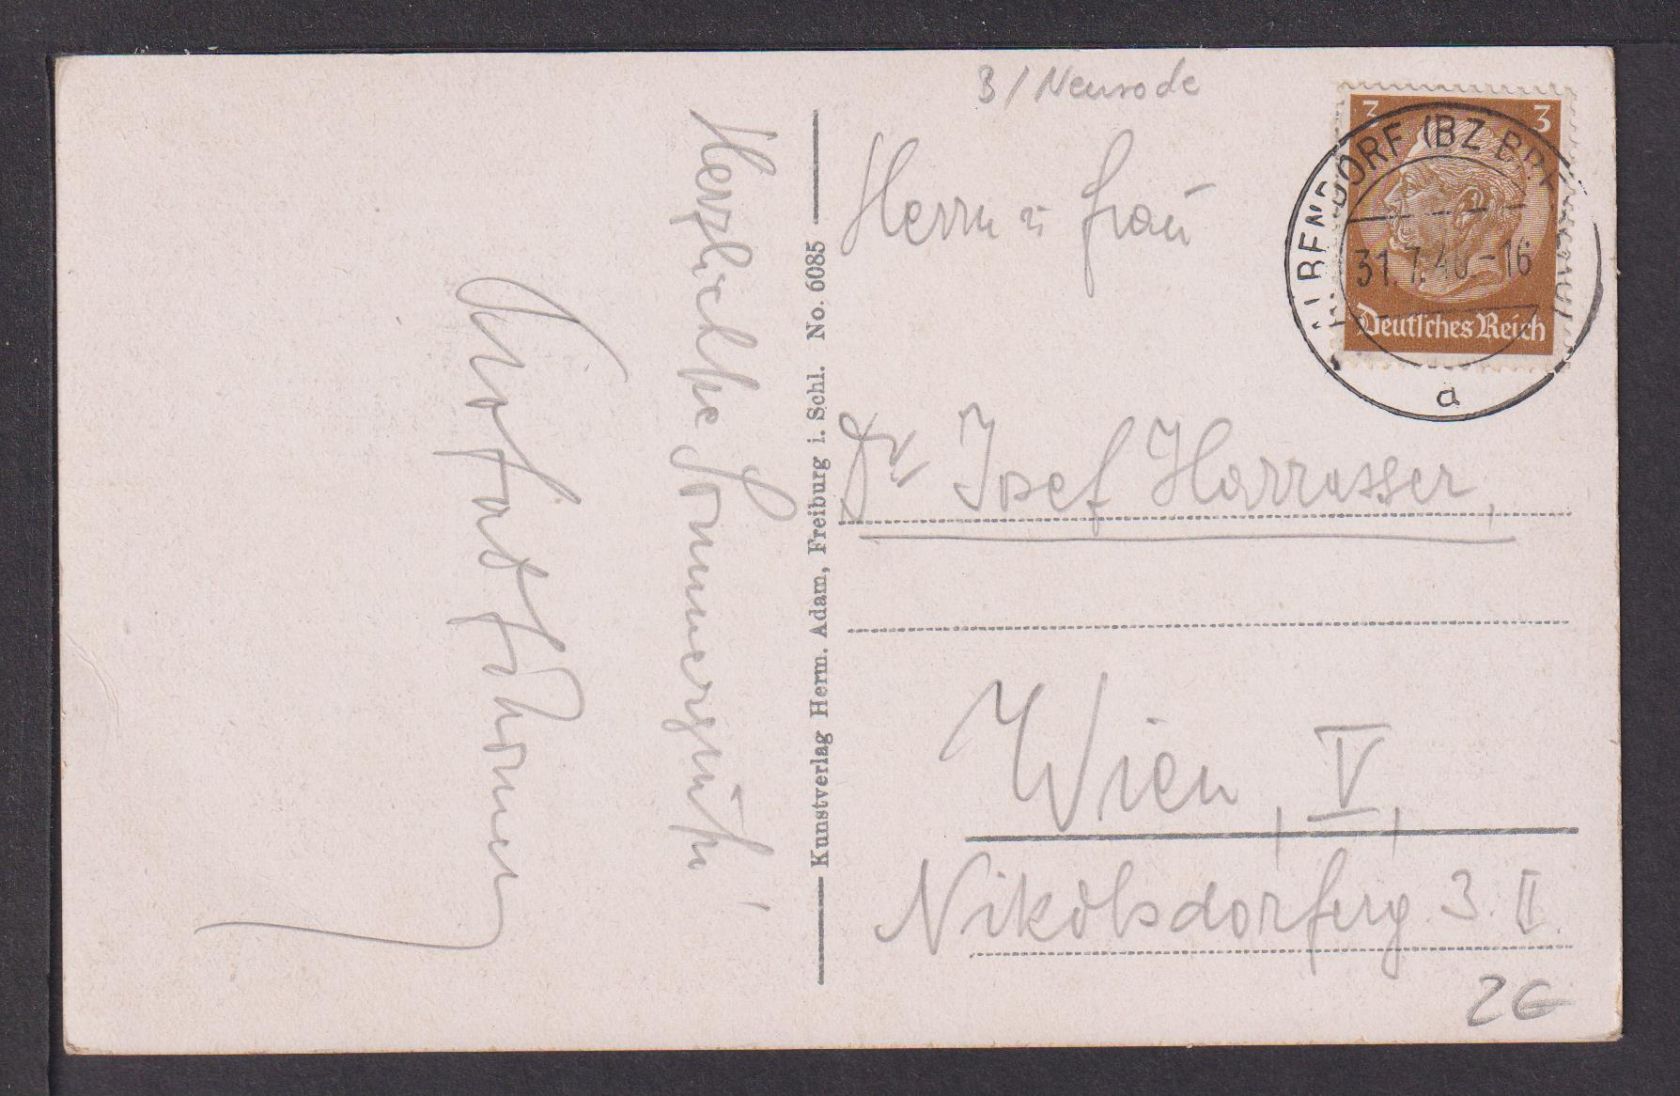 3 / Neurode
3 3
ALBENDORF (BZ BR
31.7.40-16
Deutsches Reich
a
Herrn u Frau
Dr Josef Harrasser,
Wien, V,
Nikolsdorferg 3. II.
Kunstverlag Herm. Adam, Freiburg i. Schl. No. 6085
Herzliche Sommergrüße